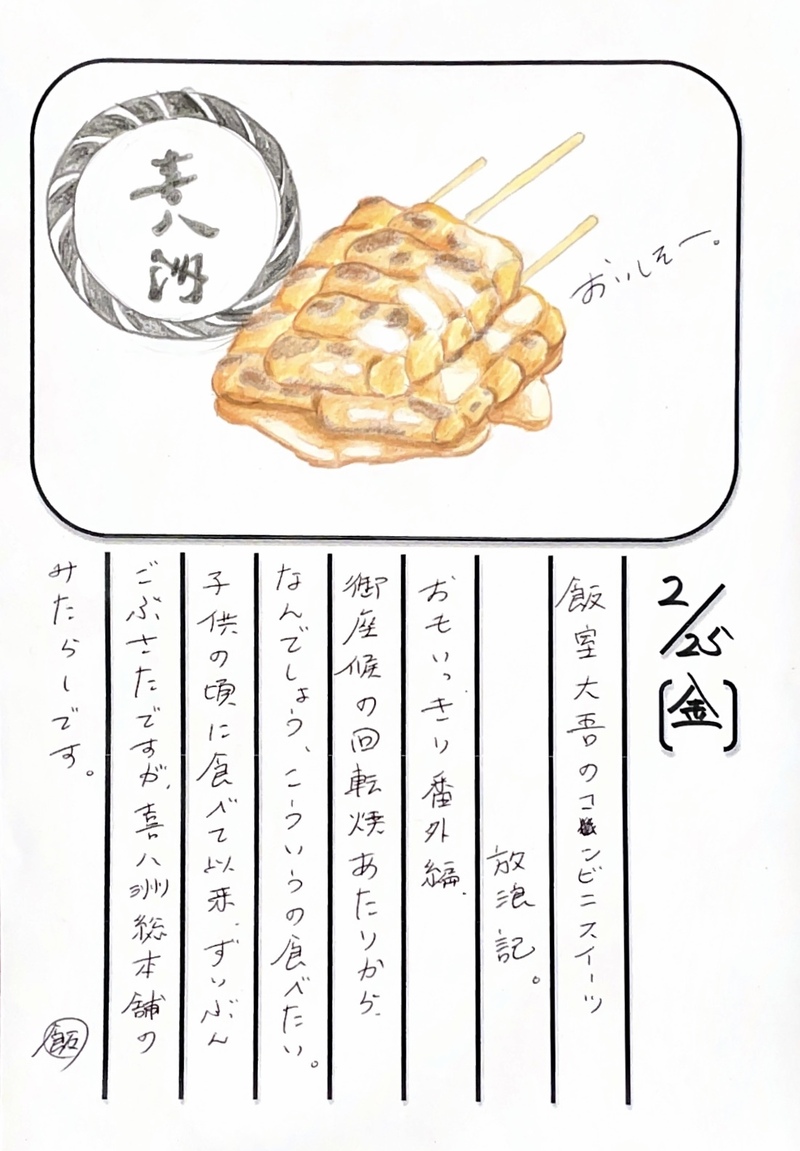 喜八洲
おいしそー。
2/25
(金)
飯室大吾のコンビニスイーツ
放浪記。
おもいっきり番外編。
御座候の回転焼あたりから、
なんでしょう、こういうの食べたい。
子供の頃に食べて以来、ずいぶん
ごぶさたですが、喜八洲総本舗の
みたらしです。
飯